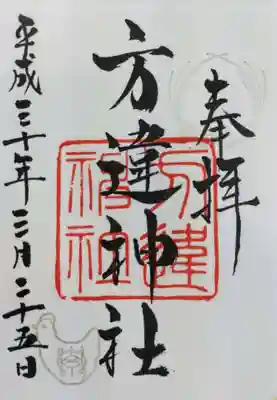 奉拝
方違神社
方違神社
平成三十年三月二十五日